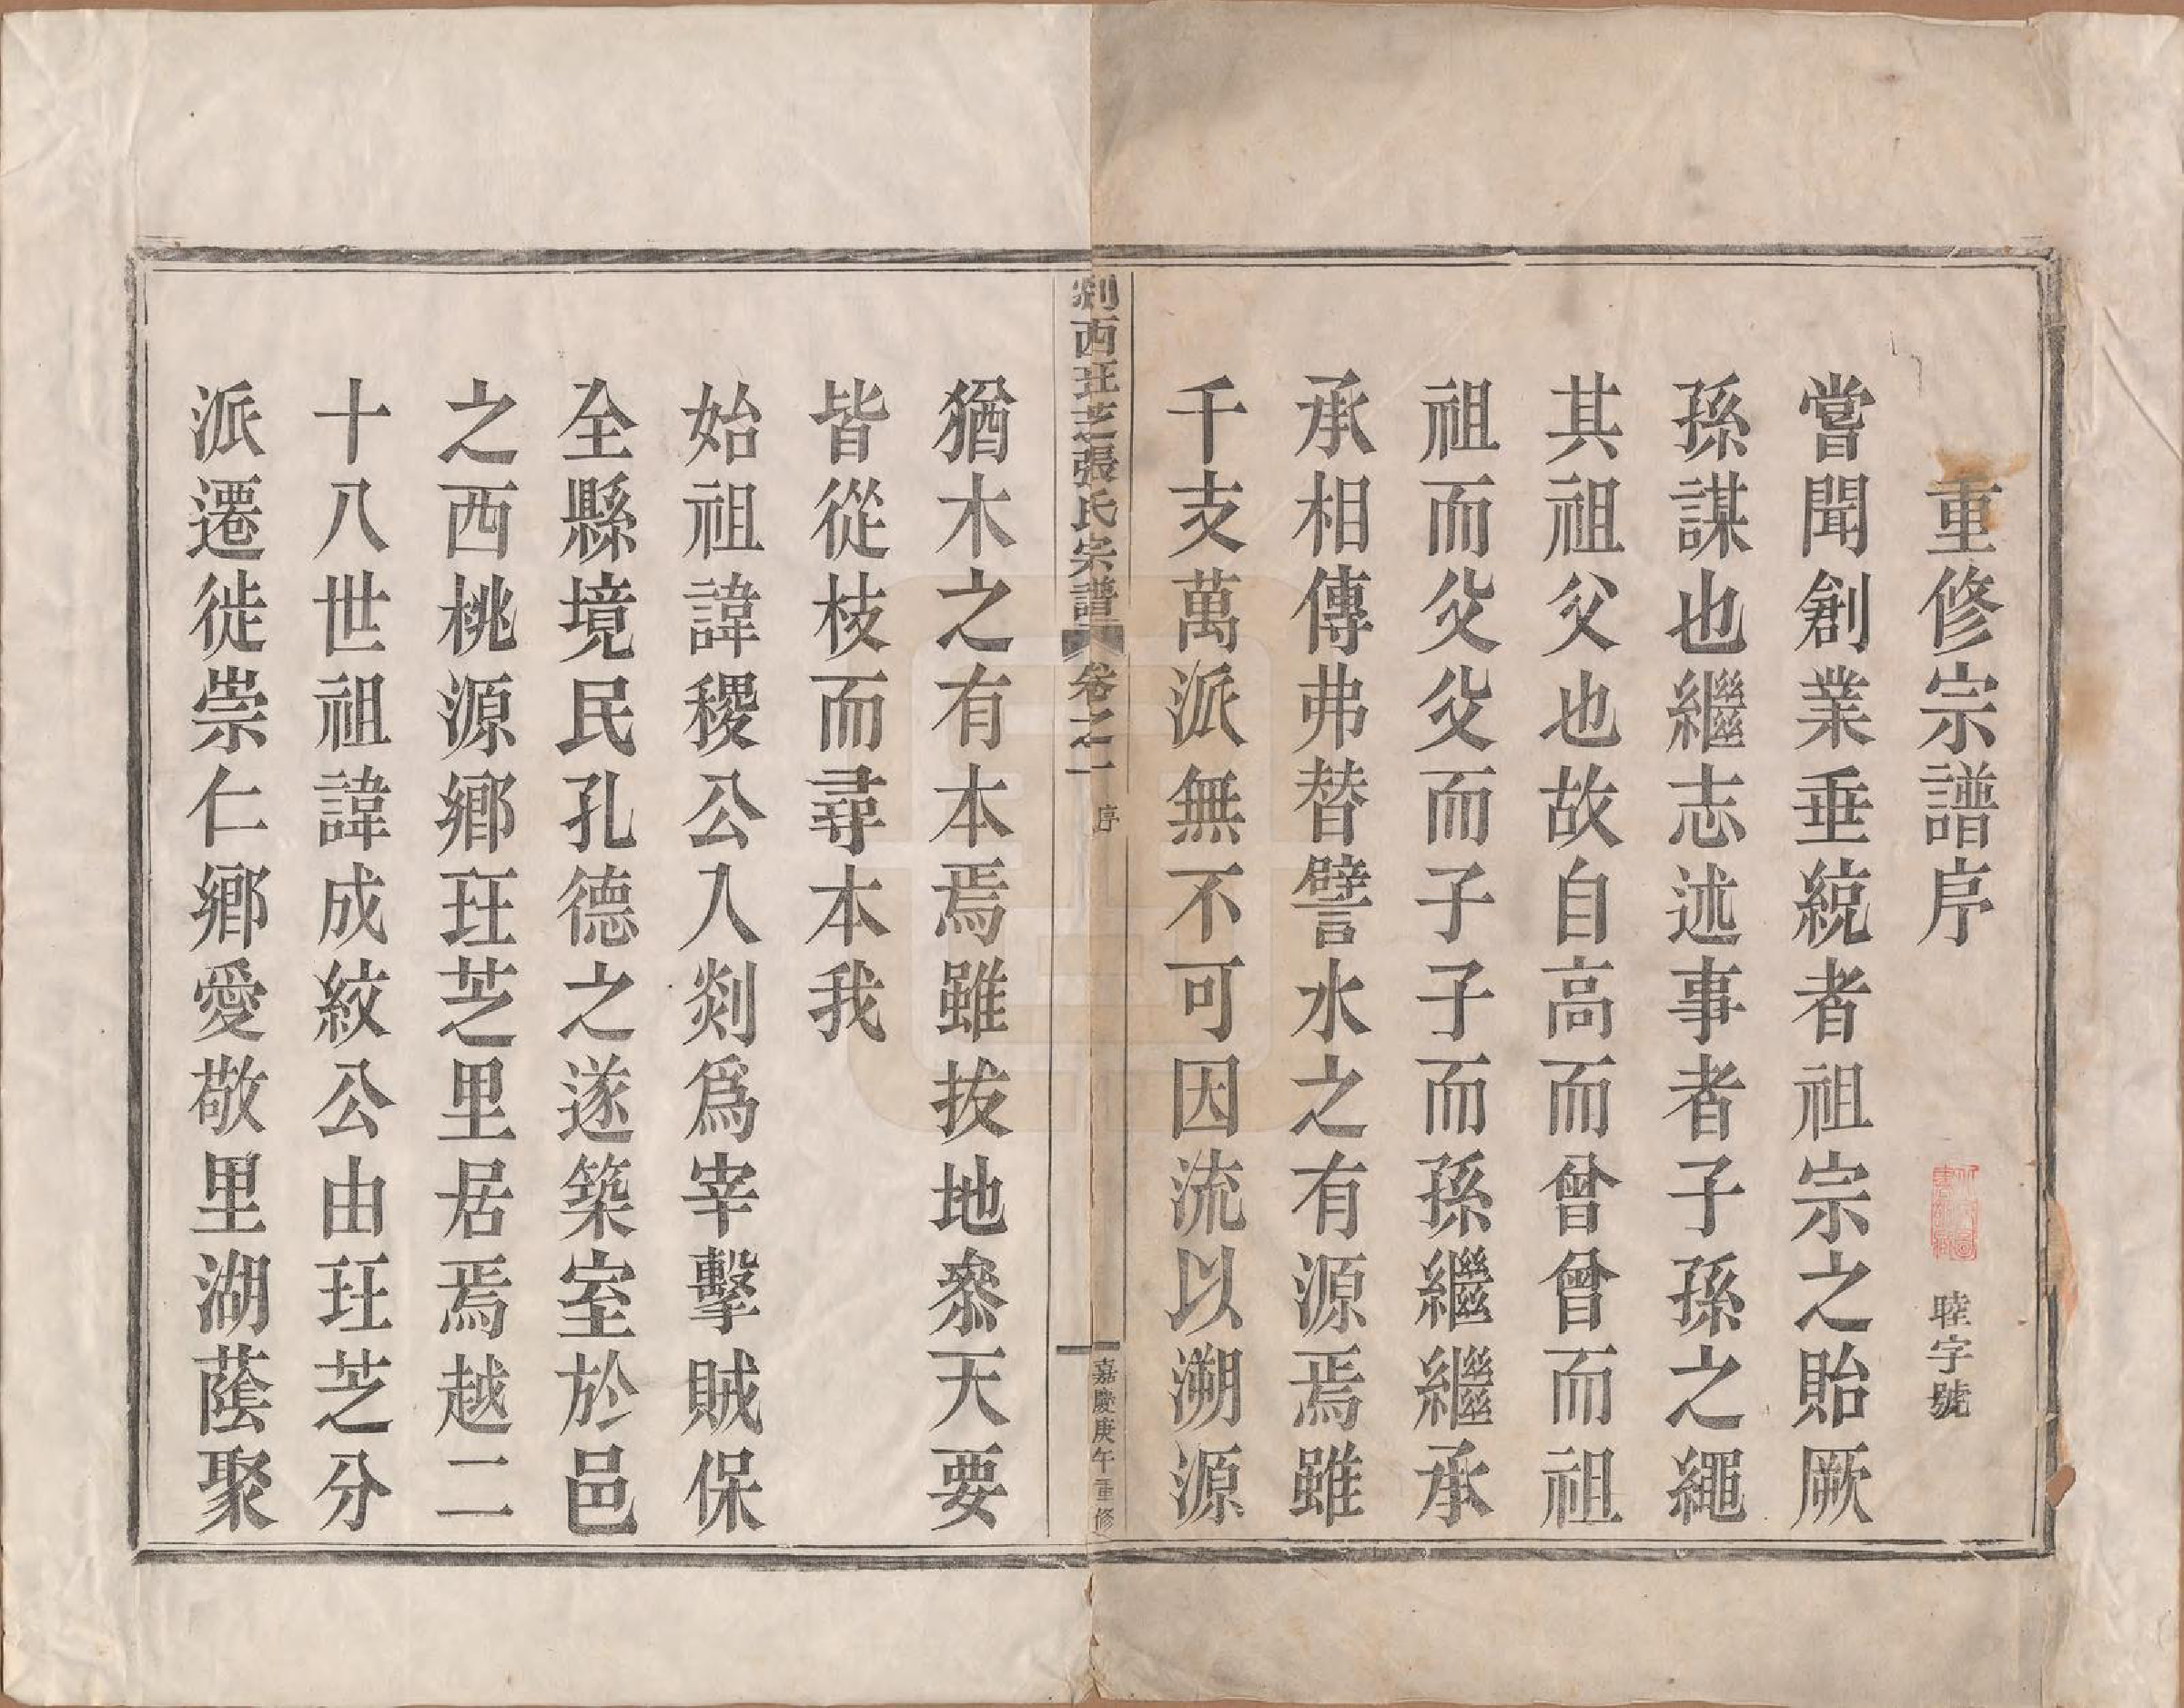 重修宗譜序
睦字號
嘗聞創業垂統者祖宗之貽厥
孫謀也繼志述事者子孫之繩
其祖父也故自高而曾曾而祖
祖而父父而子子而孫繼繼承
承相傳弗替譬水之有源焉雖
千支萬派無不可因流以溯源
剡西玨芝張氏宗譜 卷之一 序 一 嘉慶庚午重修
猶木之有本焉雖拔地叅天要
皆從枝而尋本我
始祖諱稷公入剡爲宰擊賊保
全縣境民孔德之遂築室於邑
之西桃源鄉玨芝里居焉越二
十八世祖諱成紋公由玨芝分
派遷徙崇仁鄉愛敬里湖蔭聚